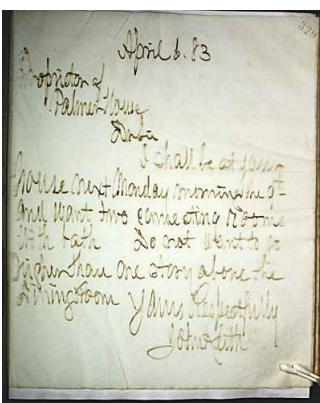 April 6. 83
Proprietor of
Palmer House
I shall be at your
house next Monday morning the 9th
and want two connecting rooms
with bath Do not want to go
higher than one story above the
Dining room Yours Respectfully
John